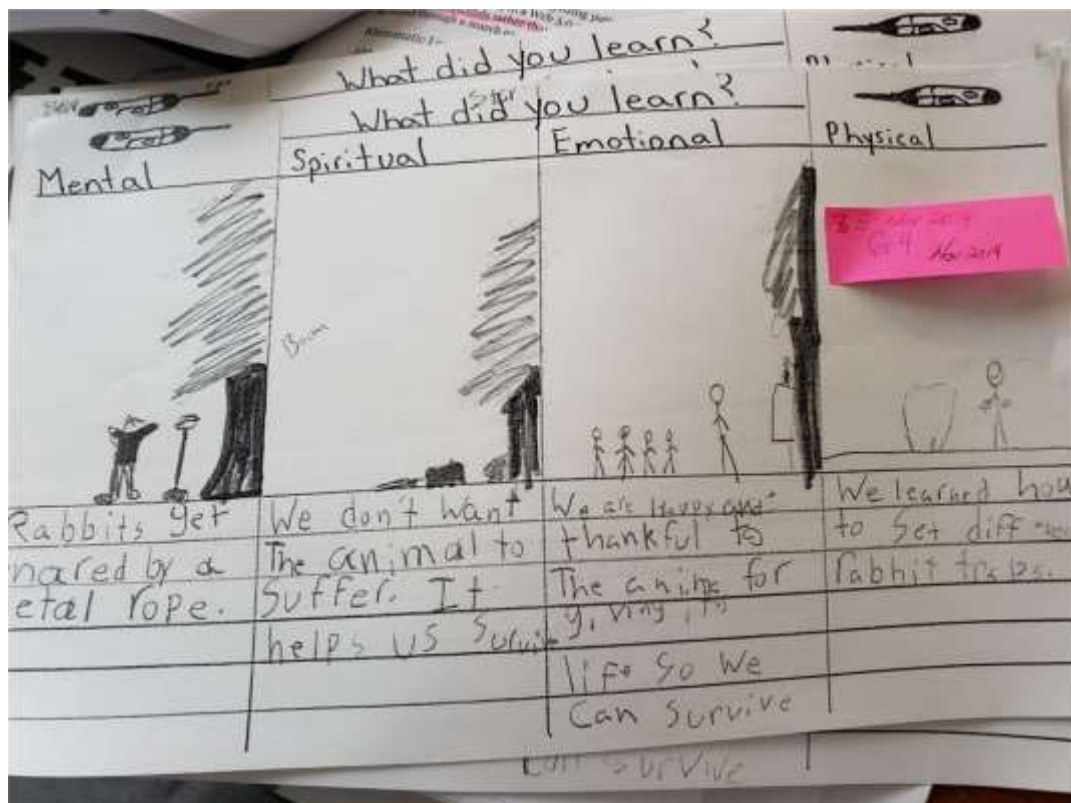 What did you learn?
What did you learn?
Mental
Spiritual
Emotional
Physical
G4 Nov 2019
Boom
Rabbits get
nared by a
etal rope.
We don't want
The animal to
Suffer. It
helps us Survive
We are Happy and
thankful to
The anima for
giving its
life So We
Can Survive
We learned how
to Set diff
rabbit traps.
Can Survive